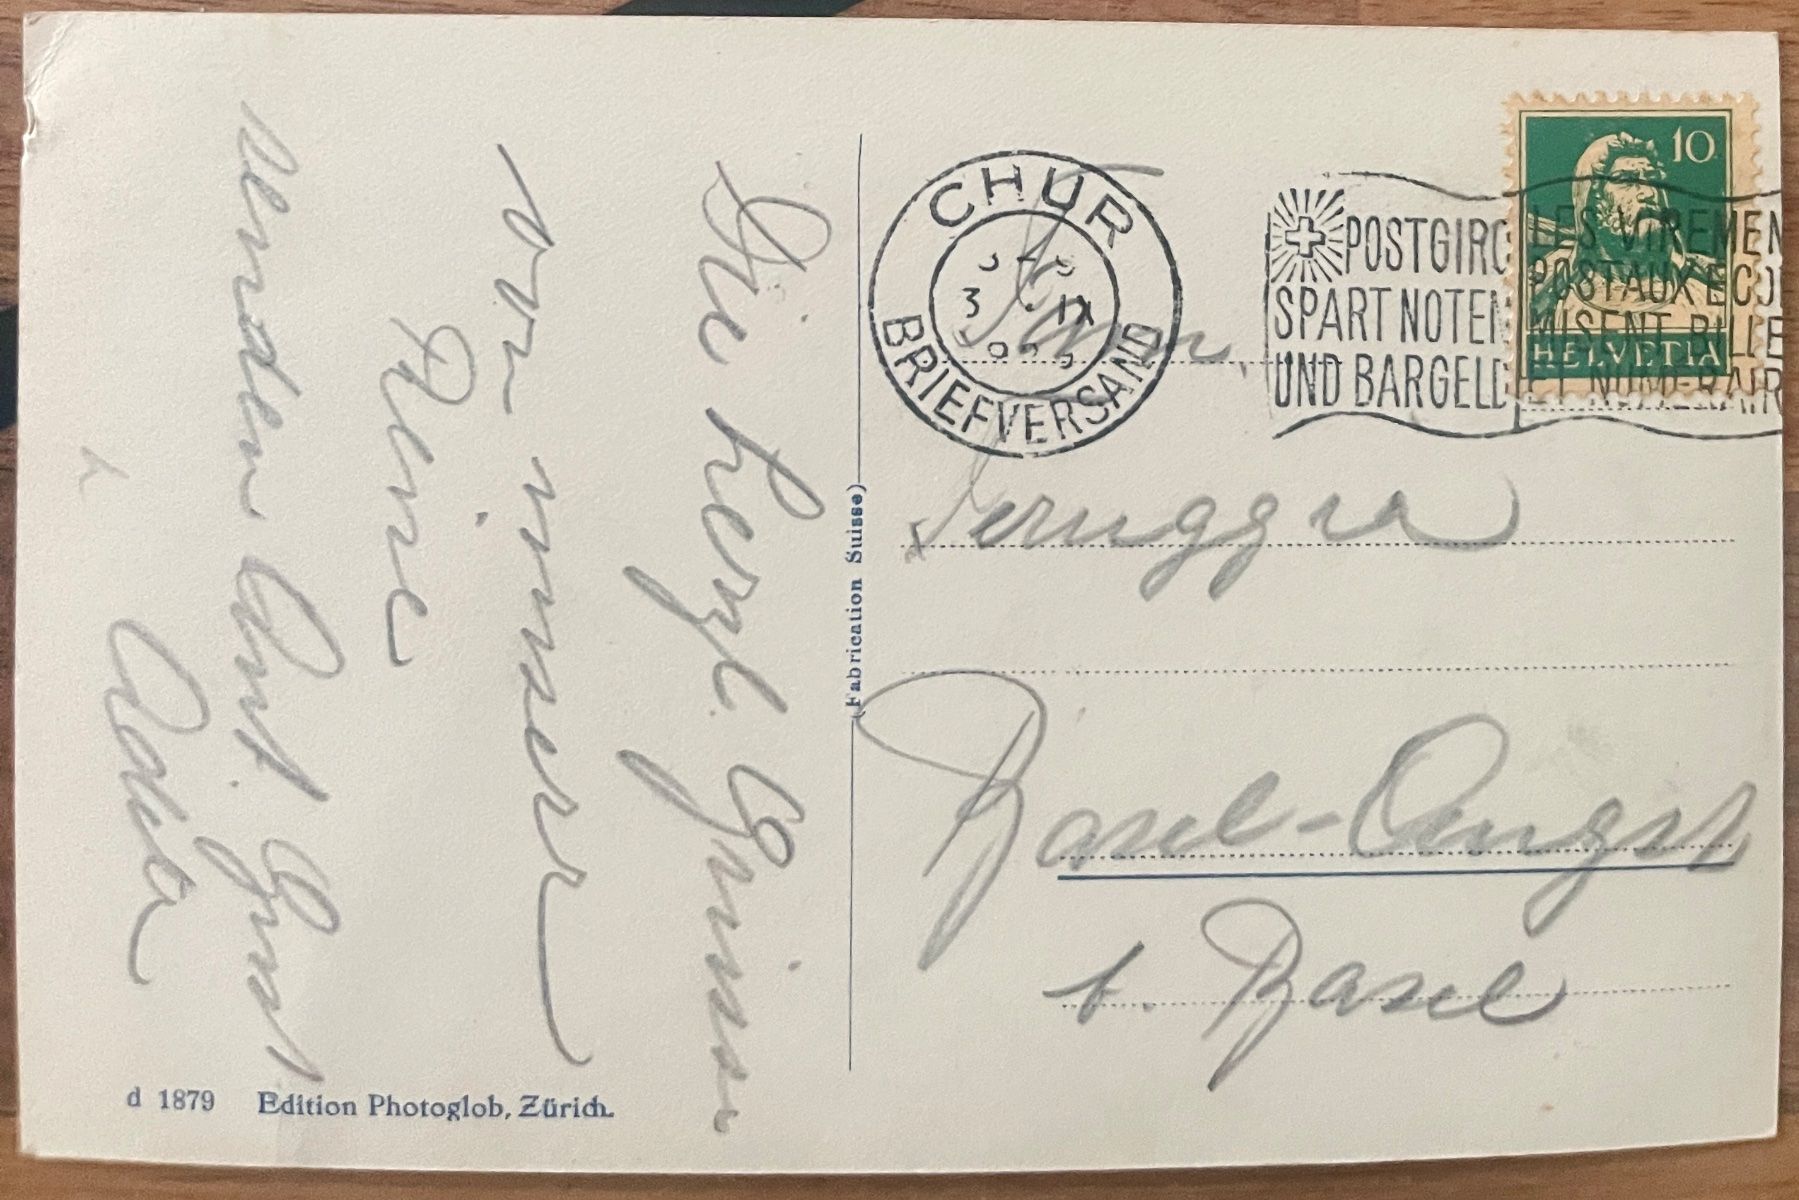 Die herzl. Grüsse
von unserer
Reise
senden Aug. Gust
Adda
d 1879 Edition Photoglob, Zürich.
(Fabrication Suisse)
CHUR
3 IX
BRIEFVERSAND
POSTGIRO
SPART NOTEN
UND BARGELD
LES VIREMEN
POSTAUX ECO
MISENT BILLE
ET NUMERAIR
10
HELVETIA
Fam.
Feruggia
Basel-Augst
b. Basel